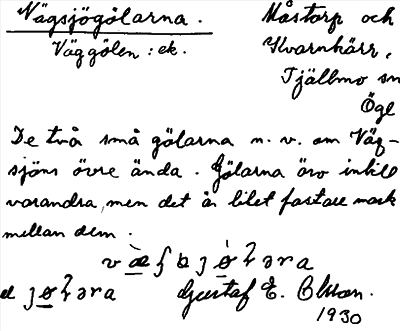 Vägsjögölarna. Måstorp och
Väggölen: ek. Kvarnhärr,
Tjällmo sn
Ögl
De två små gölarna n. v. om Väg-
sjöns övre ända. Gölarna äro intill
varandra, men det är litet fastare mark
mellan dem.
Gustaf E. Olsson.
1930